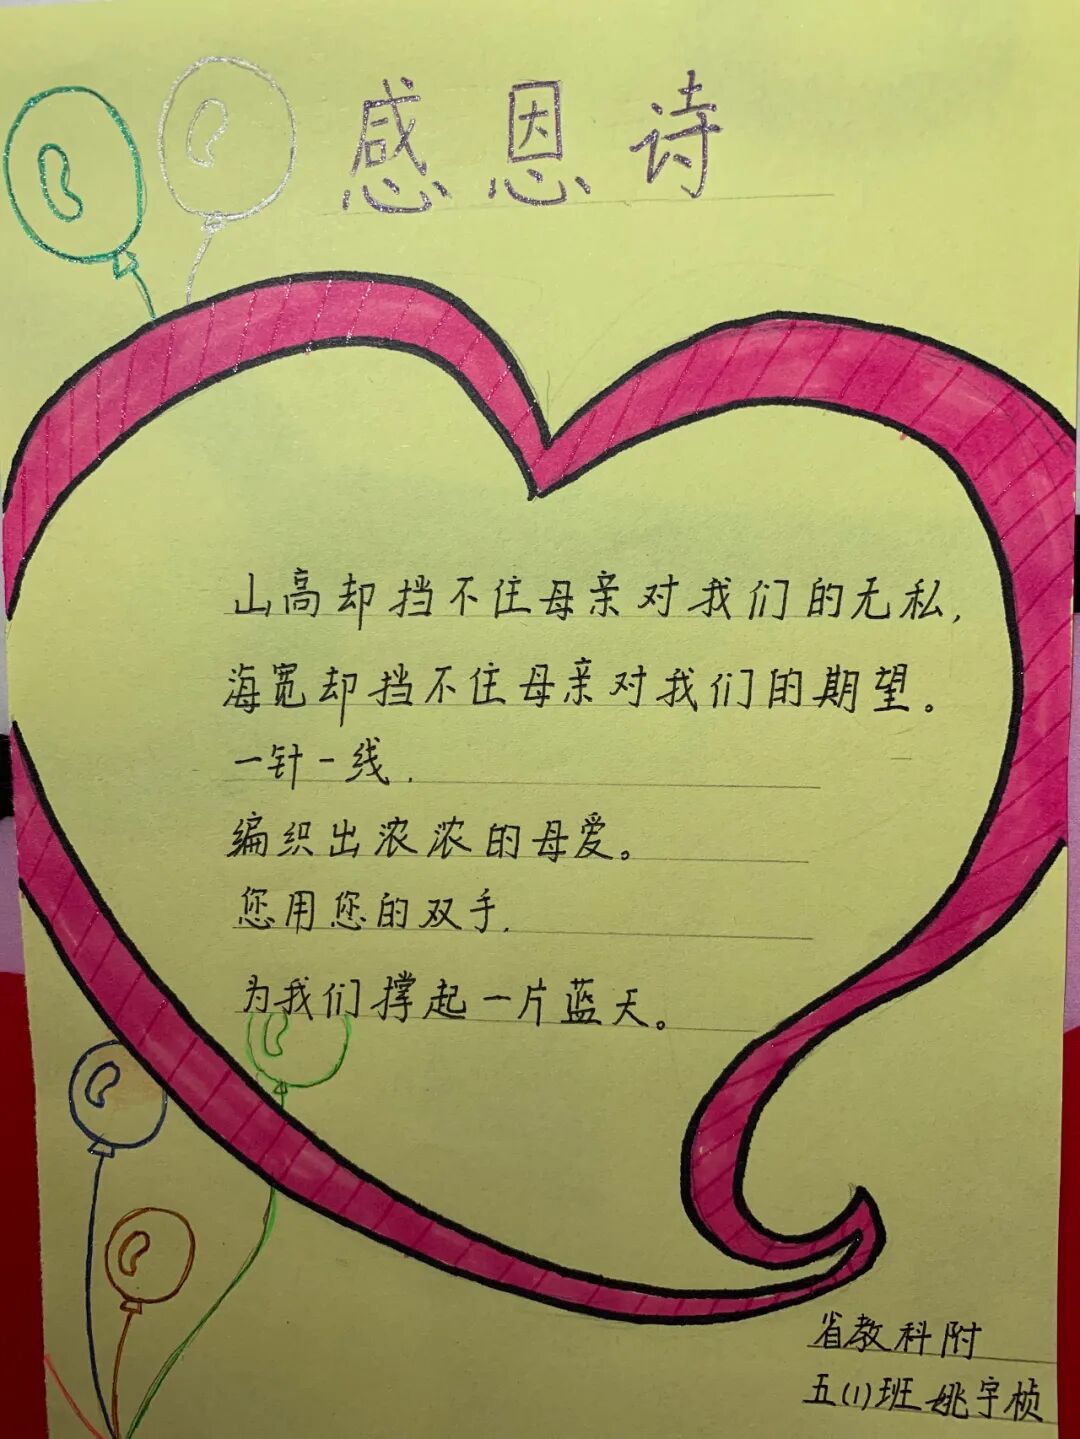 感恩诗
山高却挡不住母亲对我们的无私,
海宽却挡不住母亲对我们的期望。
一针一线,
编织出浓浓的母爱。
您用您的双手,
为我们撑起一片蓝天。
省教科附
五(1)班姚宇桢